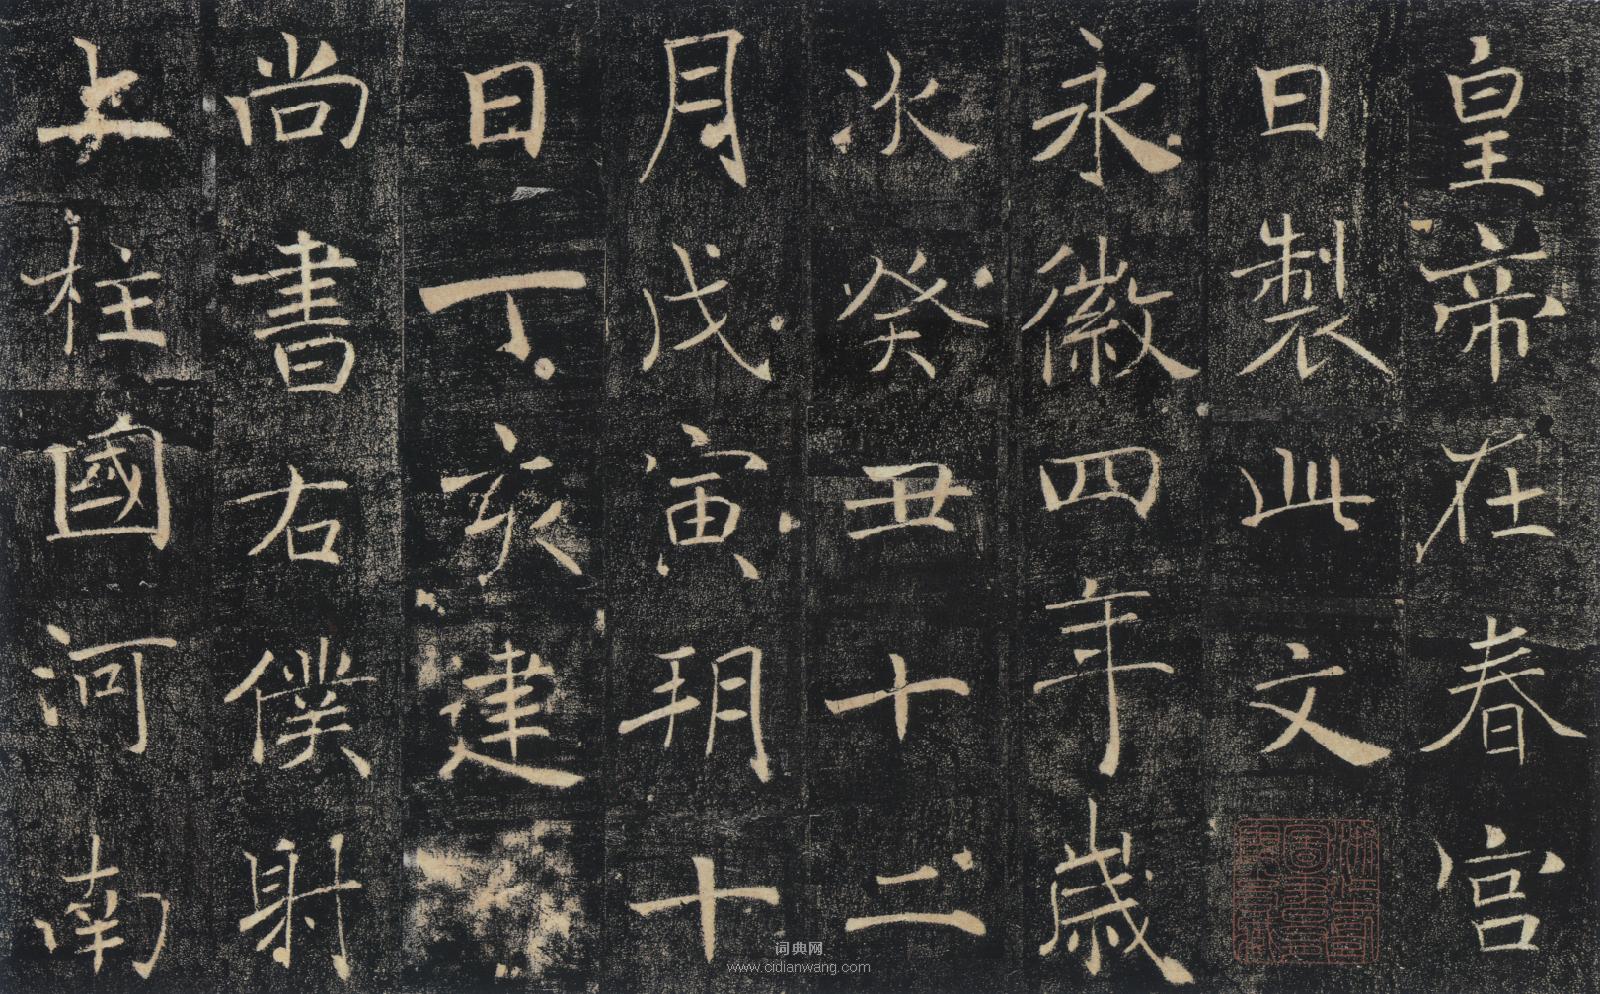 皇帝在春宮
日製此文
永徽四年歲
次癸丑十二
月戊寅玥十
日丁亥建
尚書右僕射
上柱國河南
词典网
www.cidianwang.com